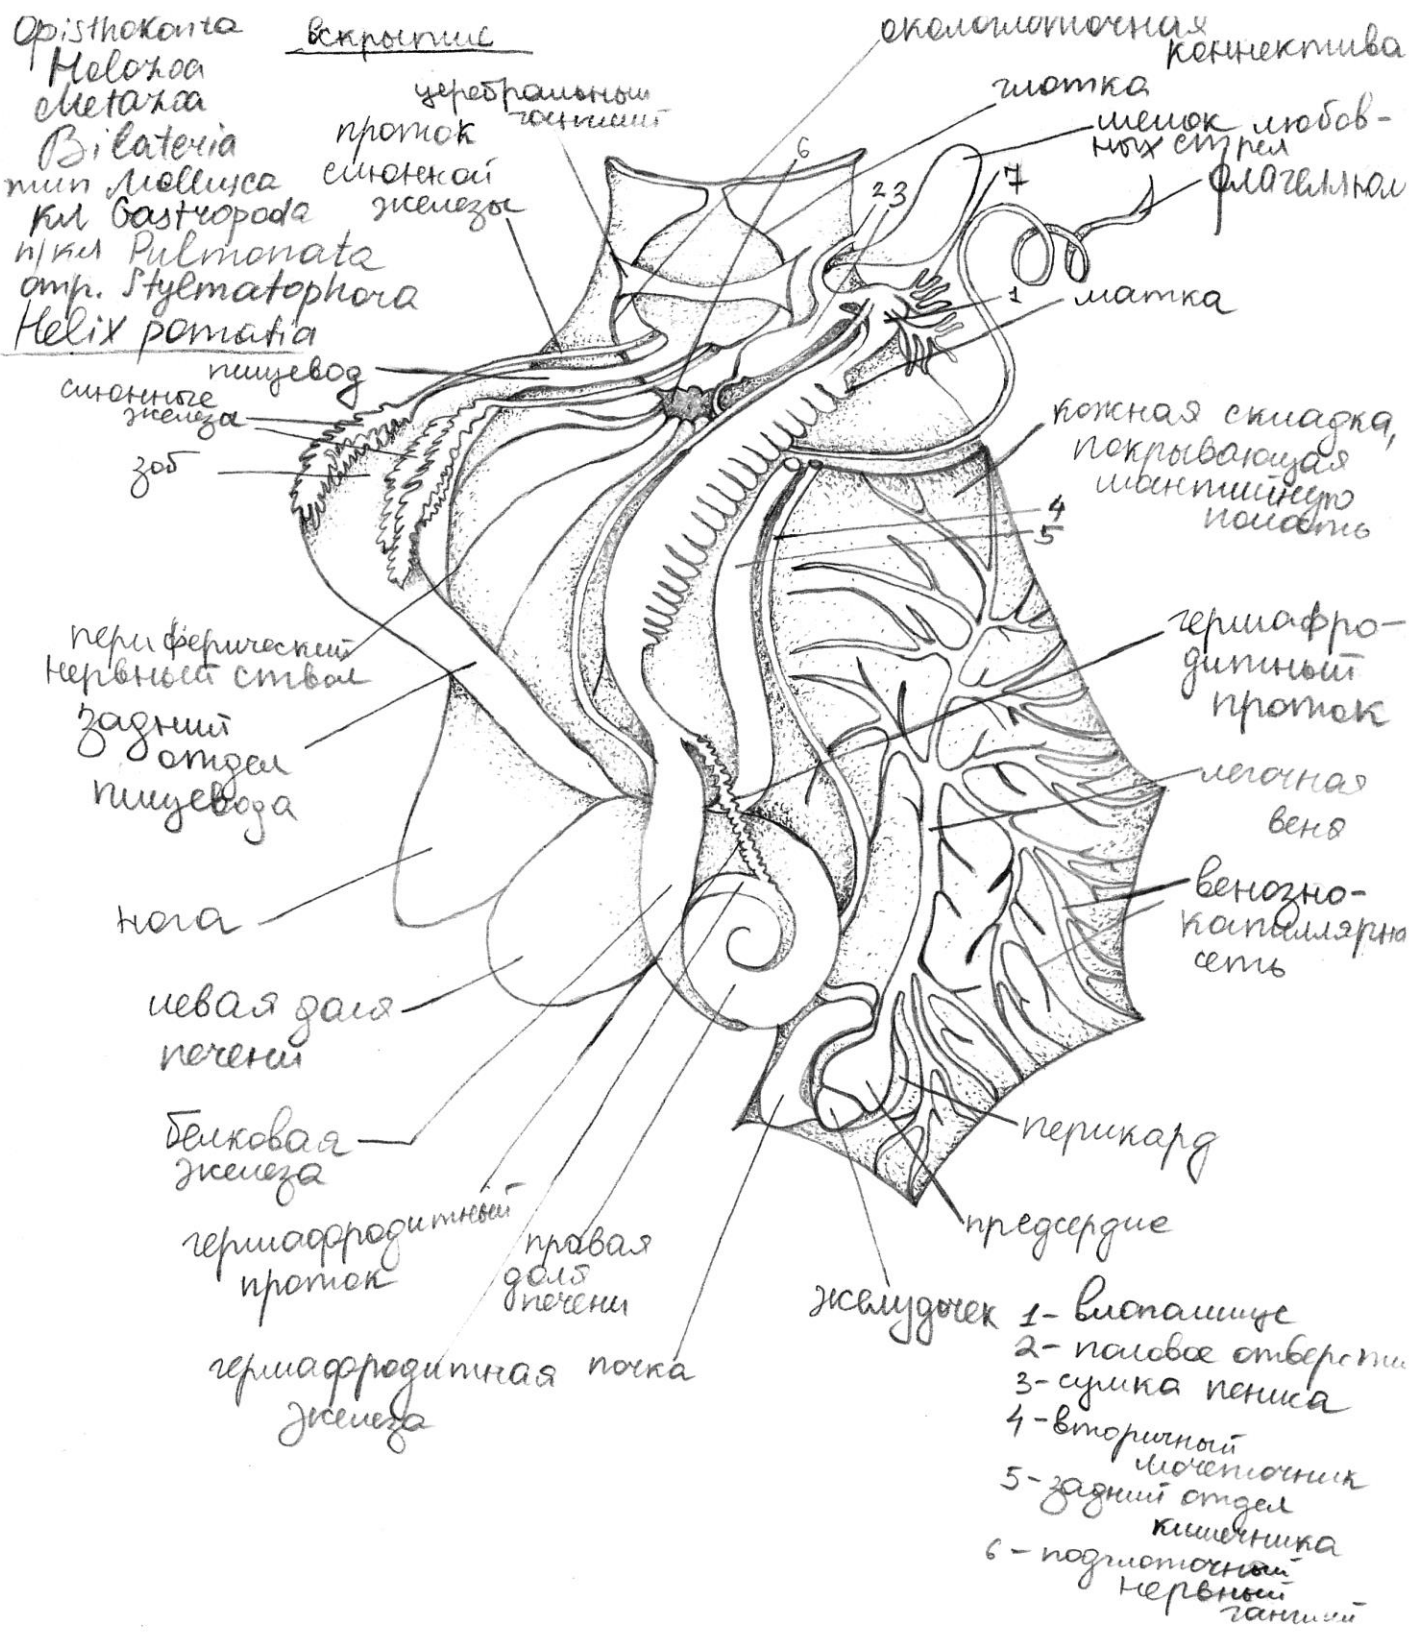 Opisthokonta
Holozoa
Metazoa
Bilateria
тип Mollusca
кл Gastropoda
п/кл Pulmonata
отр. Stylmatophora
Helix pomatia
вскрытие
церебральный
ганглий
проток
слюнной
железы
6
2 3
7
1
окологлоточная
коннектива
глотка
мешок любов-
ных стрел
флагеллюм
матка
пищевод
слюнные
железа
зоб
кожная складка,
покрывающая
мантийную
полость
4
5
периферический
нервный ствол
задний
отдел
пищевода
гермафро-
дитный
проток
легочная
вена
нога
венозно-
капиллярна
сеть
левая доля
печени
белковая
железа
перикард
гермафродитный
проток
правая
доля
печени
предсердие
желудочек
гермафродитная
железа
почка
1- влагалище
2- половое отверсти
3- сумка пениса
4- вторичный
мочеточник
5- задний отдел
кишечника
6- подглоточный
нервный
ганглий